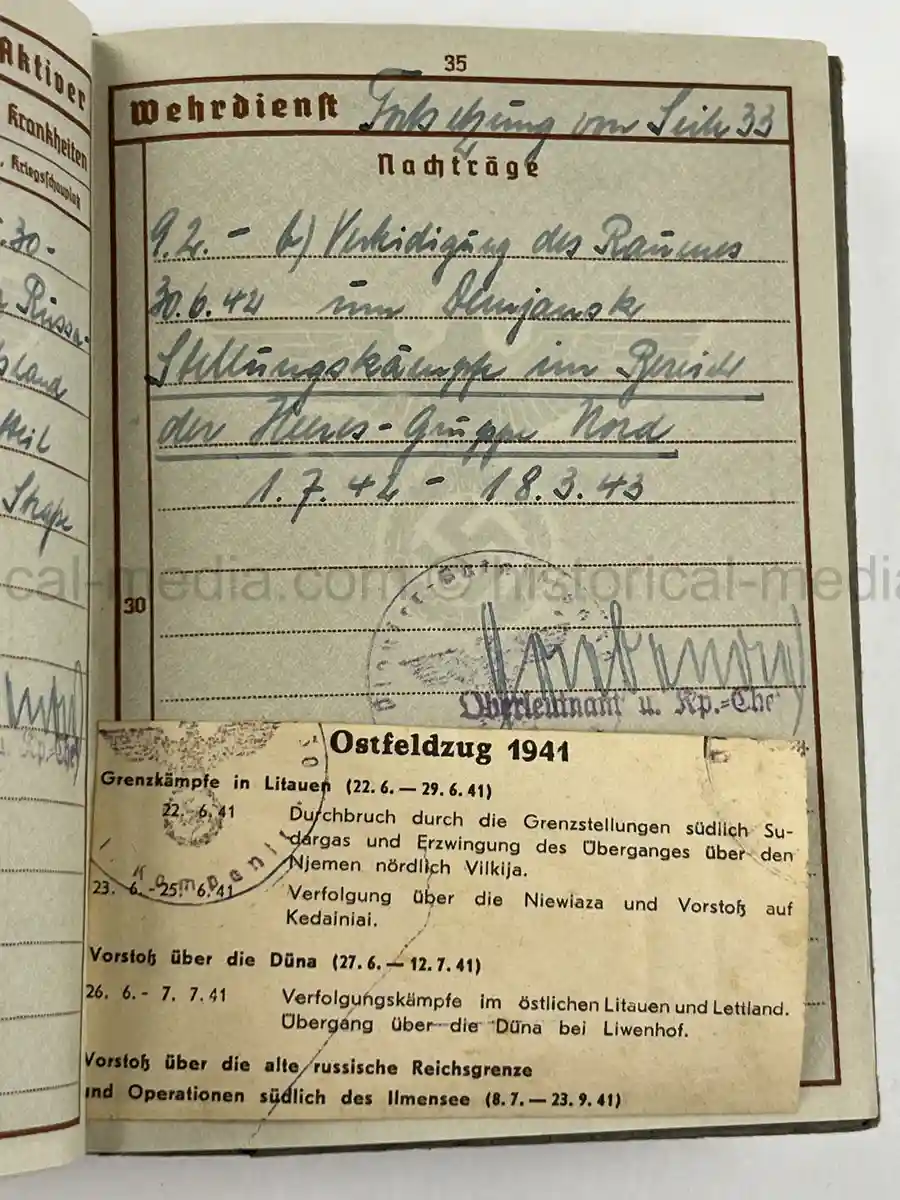 Aktiver
Krankheiten
, Kriegsschauplatz
.30-
Russ-
land
35
Wehrdienst Fortsetzung von Seite 33
Nachträge
9.2. - b) Verteidigung des Raumes
30.6.42 um Demjansk
Stellungskämpfe im Bereich
der Heeres-Gruppe Nord
1.7.42 - 18.3.43
cal-media.com © historical-media
30
Oberleutnant u. Kp.-Che
u. Kp.-Che
Ostfeldzug 1941
Grenzkämpfe in Litauen (22. 6. — 29. 6. 41)
22. 6. 41 Durchbruch durch die Grenzstellungen südlich Su-
dargas und Erzwingung des Überganges über den
Njemen nördlich Vilkija.
Kompanie
23. 6. - 25. 6. 41 Verfolgung über die Niewiaza und Vorstoß auf
Kedainiai.
Vorstoß über die Düna (27. 6. — 12. 7. 41)
26. 6. - 7. 7. 41 Verfolgungskämpfe im östlichen Litauen und Lettland.
Übergang über die Düna bei Liwenhof.
Vorstoß über die alte russische Reichsgrenze
und Operationen südlich des Ilmensee (8. 7. — 23. 9. 41)